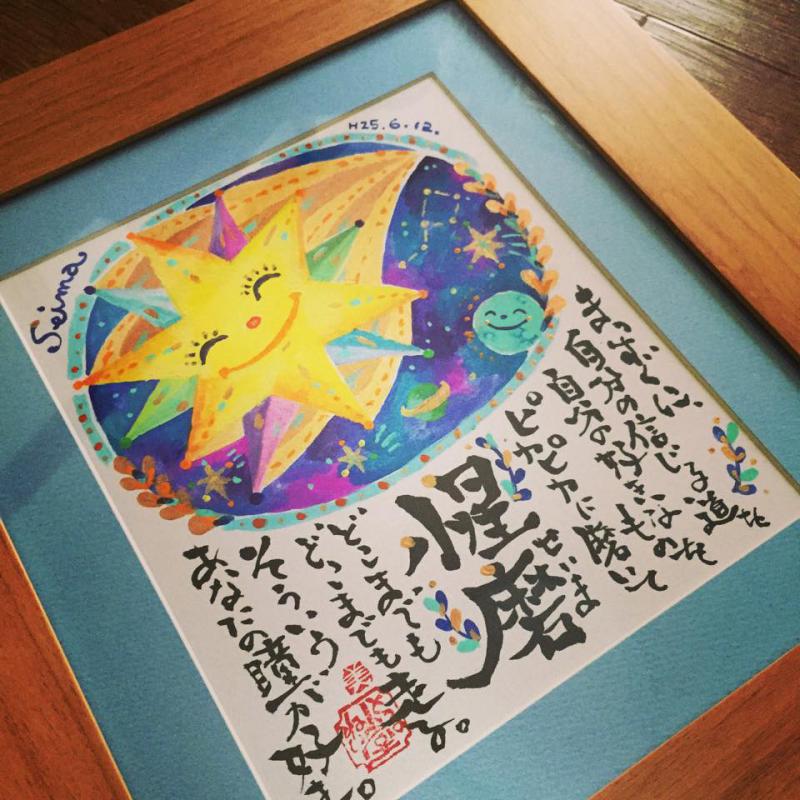 H25.6.12.
Seima
まっすぐに
自分の信じる道を
自分の好きなものを
ピカピカに磨いて
惺磨
せいま
どこまでも
どこまでも走る。
そういう
あなたの瞳が好き。